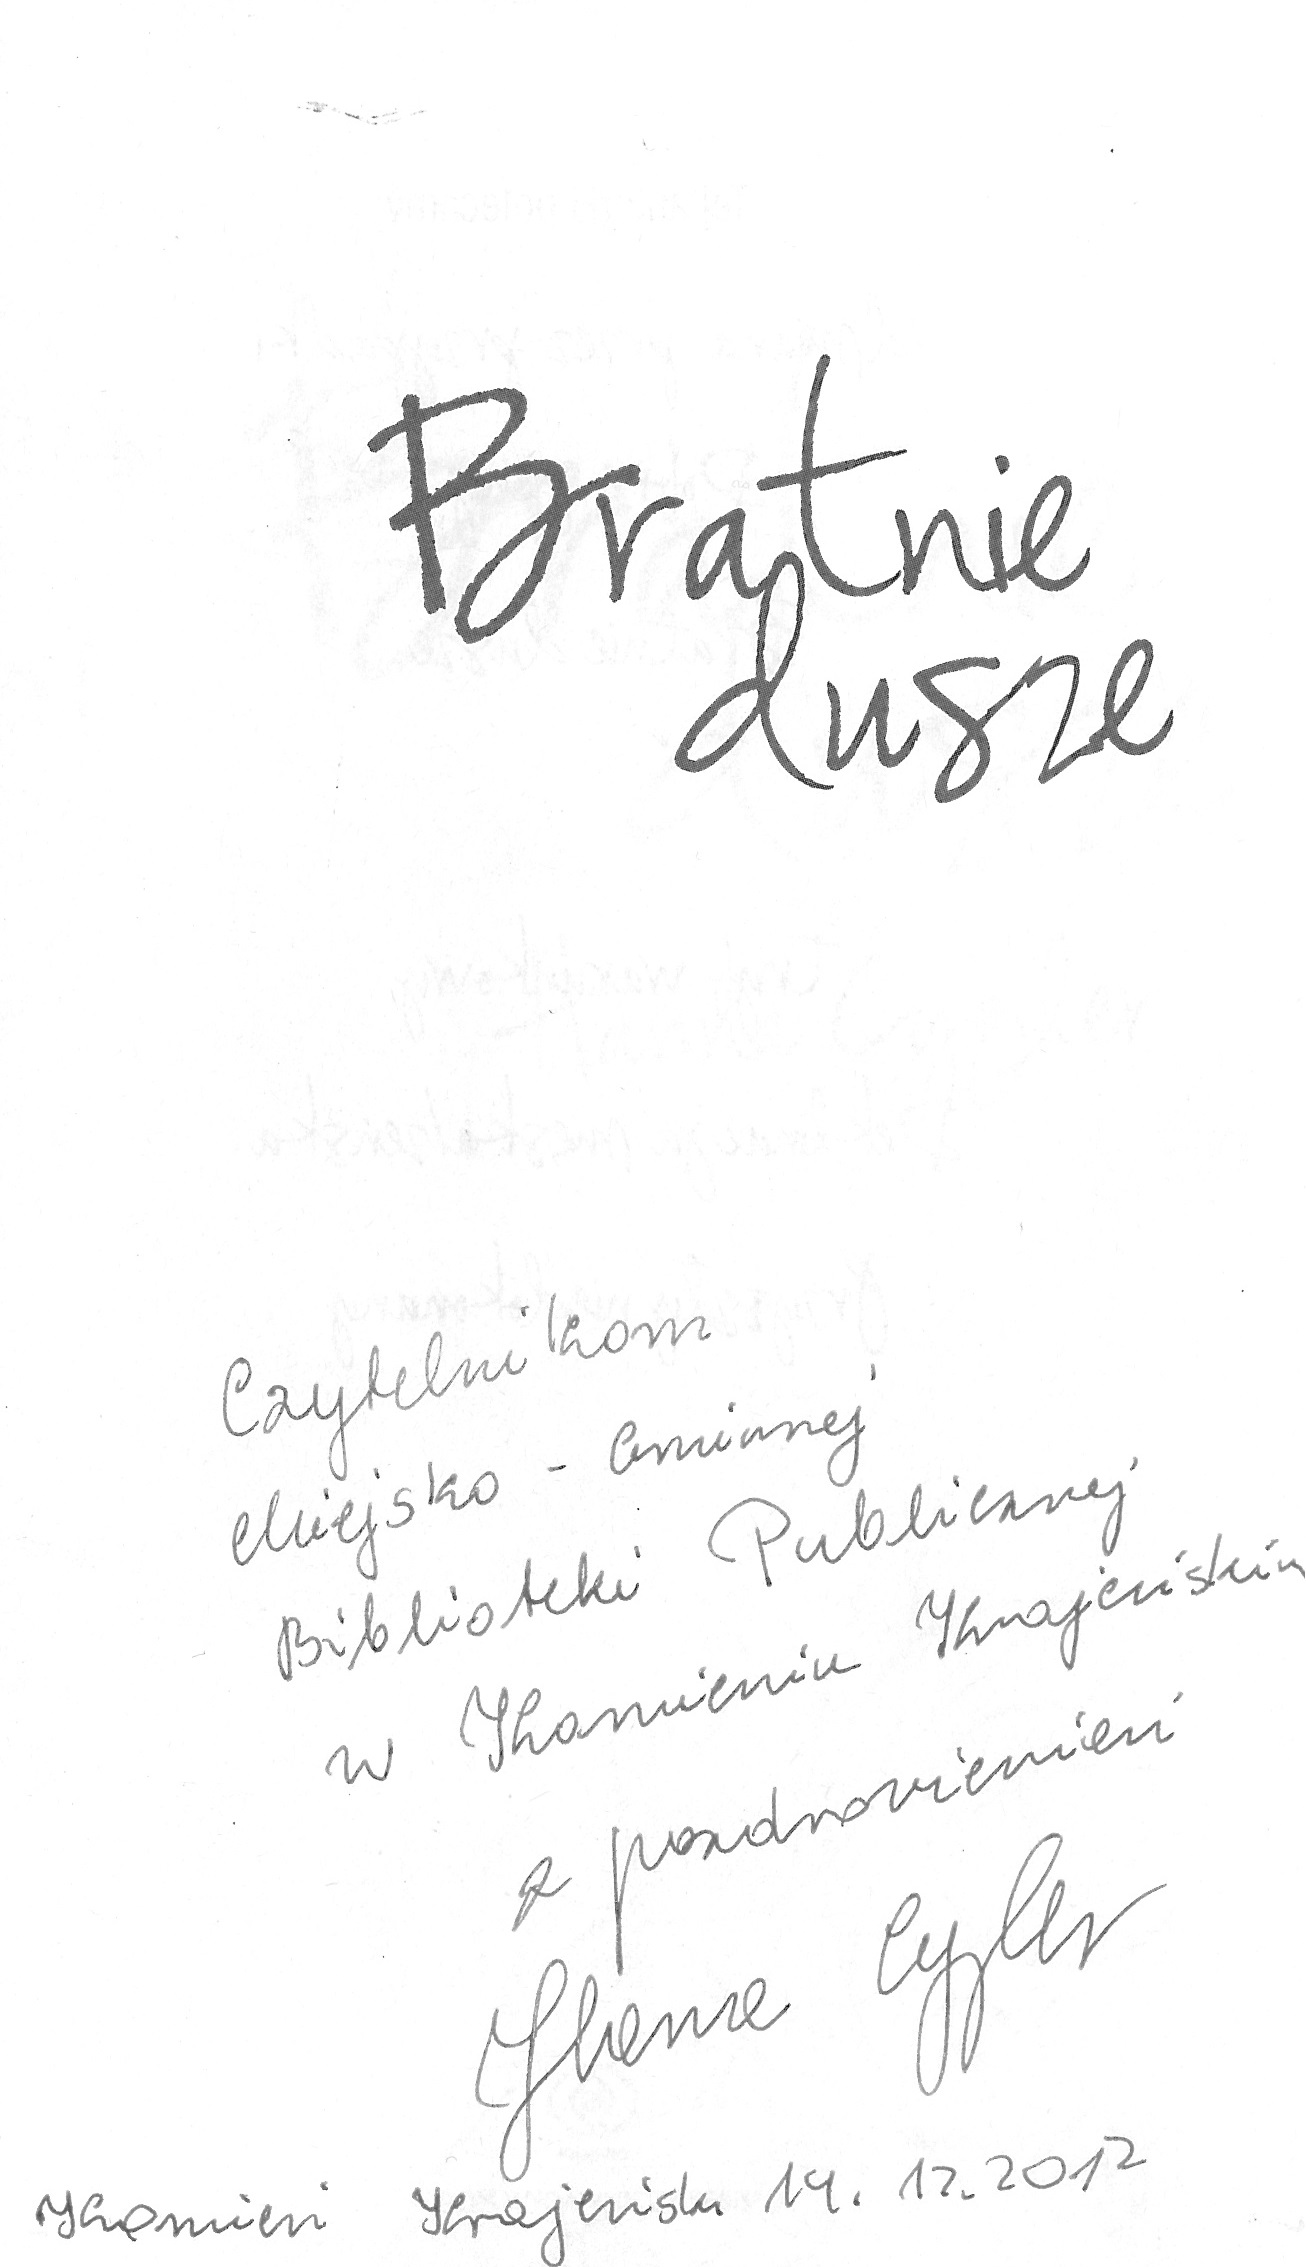 Bratnie
dusze
Czytelnikom
Miejsko - Gminnej
Biblioteki Publicznej
w Kamieniu Krajeńskim
z pozdrowieniem
Cygler
Kamień Krajeński 14. 12. 2012